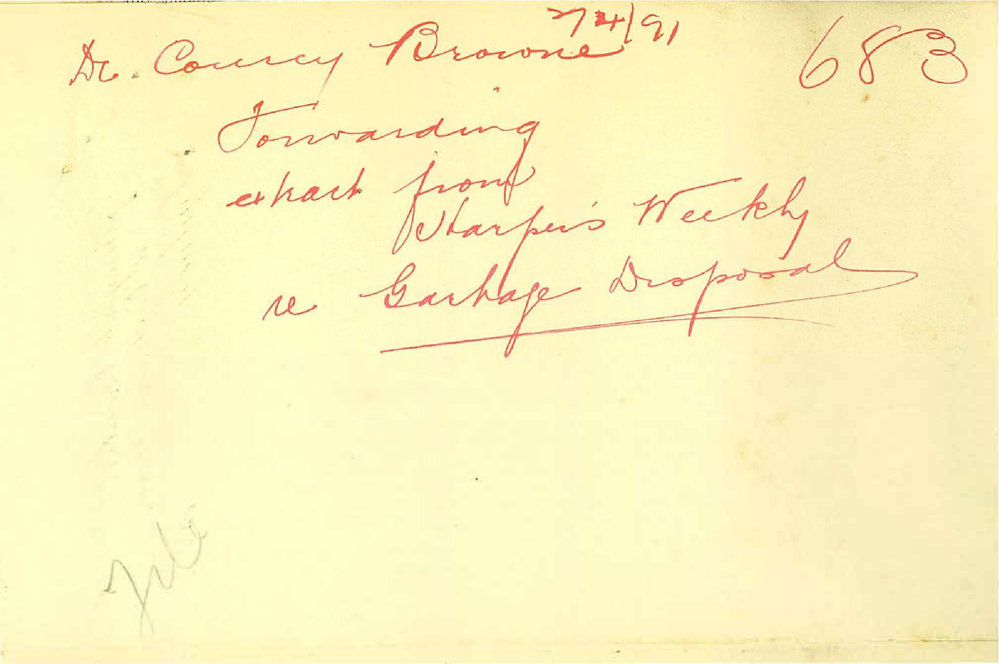 De Courcy Browne 27/4/91
683
Forwarding
extract from
Harper's Weekly
re Garbage Disposal
File